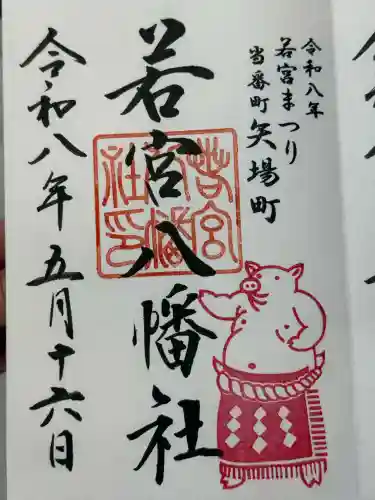 令和八年
若宮まつり
当番町 矢場町
若宮八幡社
若宮八幡社印
令和八年五月十六日